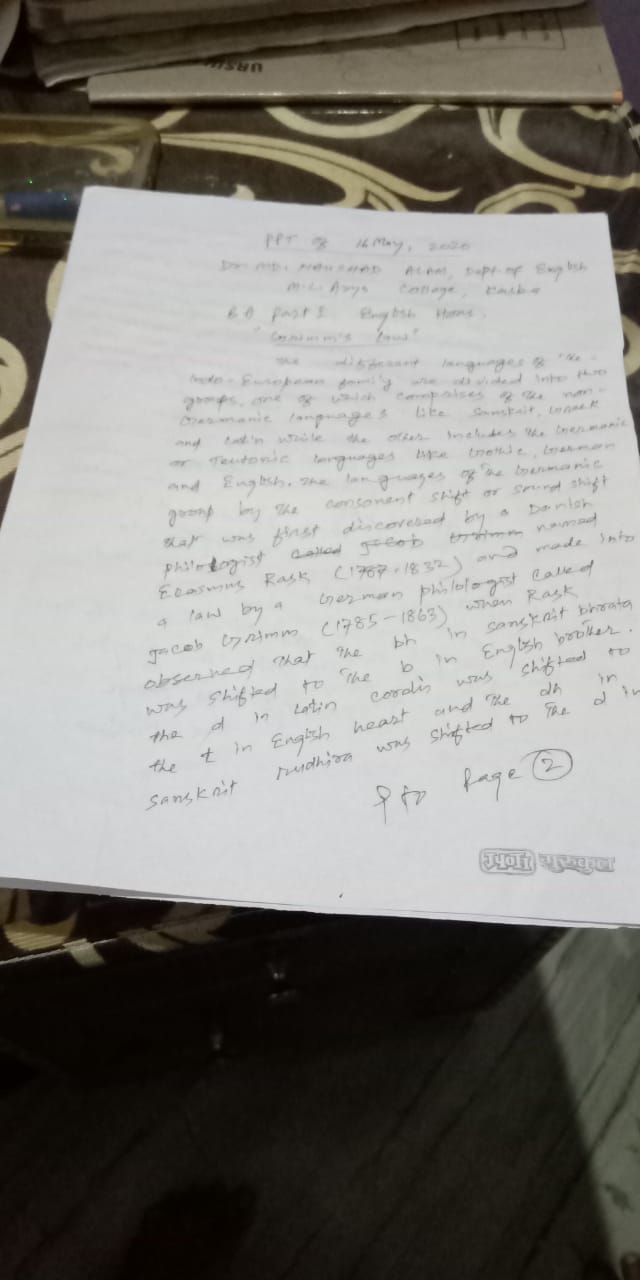 PPT of 16 May, 2020
Dr. MD. NAUSHAD ALAM, Dept. of English
M.L. Arya College, Kasba
B A Part I English Hons.
"Grimm's Law"
The different languages of the
Indo-European family are divided into two
groups, one of which comprises of the non-
Germanic languages like Sanskrit, Greek
and Latin while the other includes the Germanic
or Teutonic languages like Gothic, German
and English. The languages of the Germanic
group by the consonent shift or sound shift
that was first discovered by a Danish
philologist called Jacob Grimm named
Erasmus Rask (1787-1832) and made into
a law by a German philologist called
Jacob Grimm (1785-1863) when Rask
observed that the bh in sanskrit bhrata
was shifted to the b in English brother.
the d in Latin cordis was shifted to
the t in English heart and the dh in
sanskrit rudhira was shifted to the d in
P to Page 2